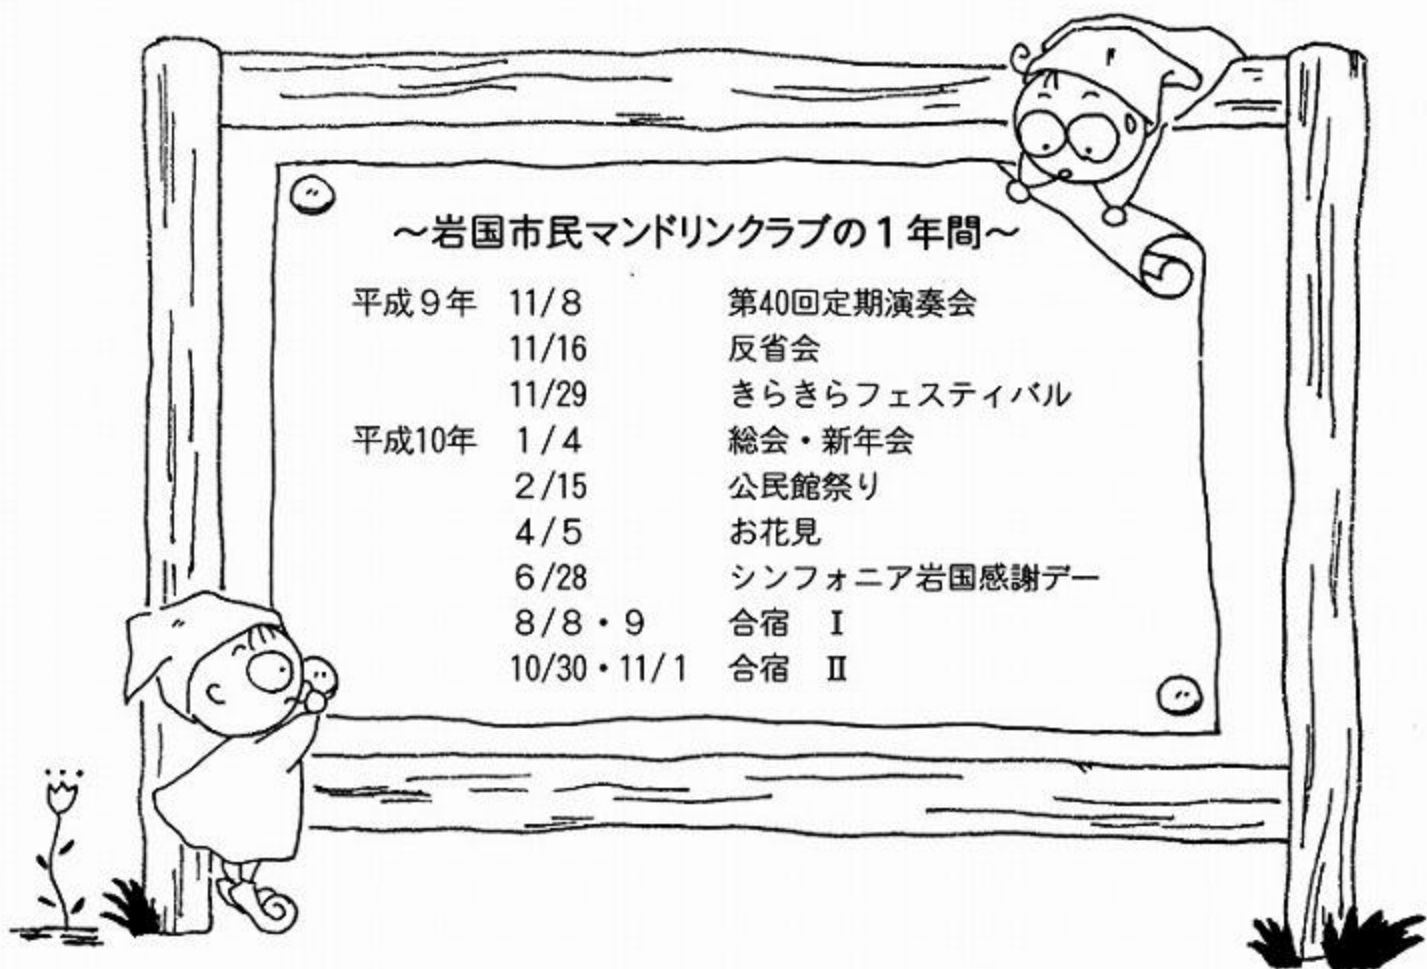 ～岩国市民マンドリンクラブの１年間～
平成９年 11/８ 第40回定期演奏会
11/16 反省会
11/29 きらきらフェスティバル
平成10年 １/４ 総会・新年会
２/15 公民館祭り
４/５ お花見
６/28 シンフォニア岩国感謝デー
８/８・９ 合宿 Ⅰ
10/30・11/１ 合宿 Ⅱ